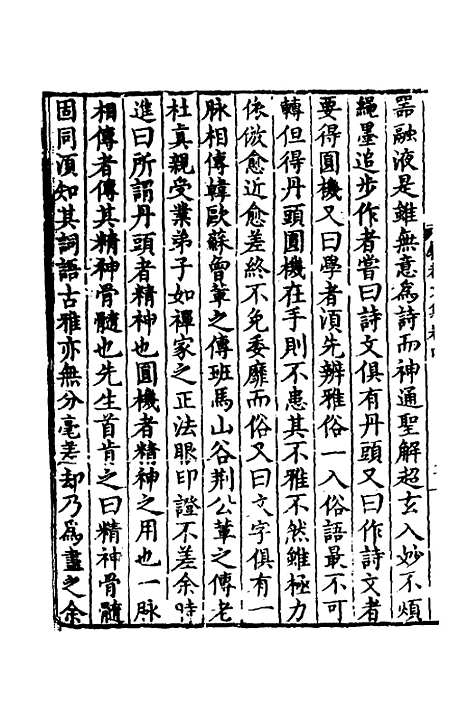 器融液是雖無意為詩而神通聖解超玄入妙不煩
繩墨追步作者嘗曰詩文俱有丹頭又曰作詩文者
要得圓機又曰學者湏先辨雅俗一入俗語最不可
轉但得丹頭圓機在手則不患其不雅不然雖極力
依倣愈近愈差終不免委靡而俗又曰文字俱有一
脉相傳韓歐蘇曾輩之傳班馬山谷荆公輩之傳老
杜真親受業弟子如禪家之正法眼印證不差余時
進曰所謂丹頭者精神也圓機者精神之用也一脉
相傳者傳其精神骨髓也先生首肯之曰精神骨髓
固同湏知其詞語古雅亦無分毫差却乃為盡之余